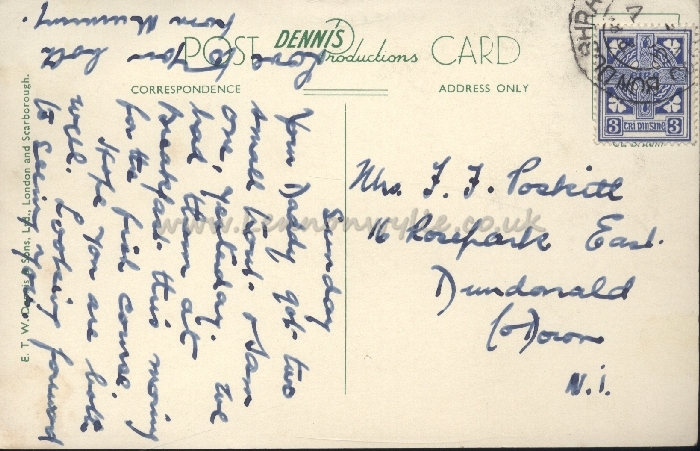 POST DENNIS Productions CARD
CORRESPONDENCE
ADDRESS ONLY
Sunday
Your Daddy got two
small trout. & Sam
one, yesterday. We
had them at
breakfast this morning
for the fish course
Hope you are both
well. Looking forward
to seeing you.
Love to you both
from Mummy.
Mrs. F. F. Poskitt
16 Rosepark East.
Dundonald
Co Down
N.I.
3 3
E. T. W. Dennis & Sons, Ltd., London and Scarborough.